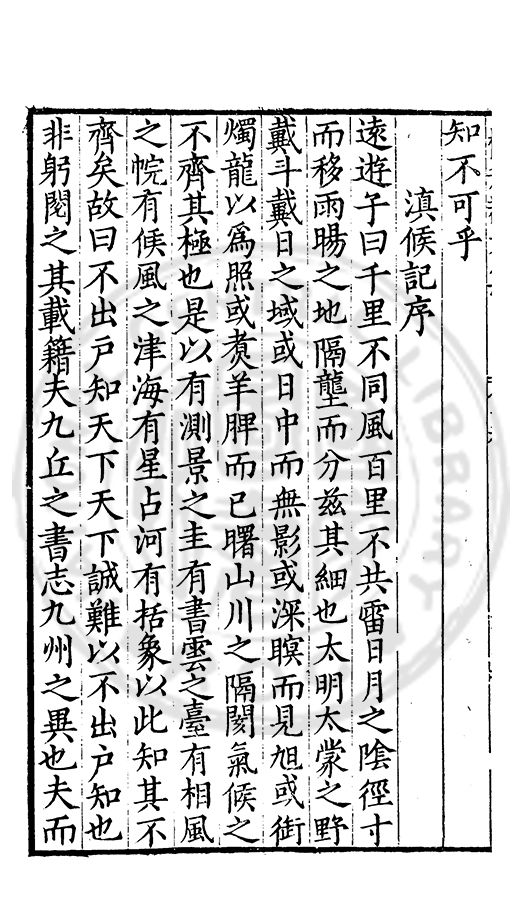 知不可乎
滇候記序
遠遊子曰千里不同風百里不共雷日月之陰徑寸
而移雨暘之地隔壟而分兹其細也太明太蒙之野
戴斗戴日之域或日中而無影或深暝而見旭或銜
燭龍以爲照或煑羊脾而已曙山川之隔閡氣候之
不齊其極也是以有測景之圭有書雲之臺有相風
之帨有候風之津海有星占河有括象以此知其不
齊矣故曰不出户知天下天下誠難以不出户知也
非躬閱之其載籍夫九丘之書志九州之異也夫而